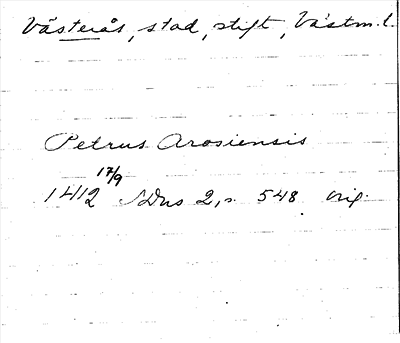 Västerås, stad, stift, Västm.l.
Petrus Arosiensis
1412 17/9 SDns 2, s. 548 orig.